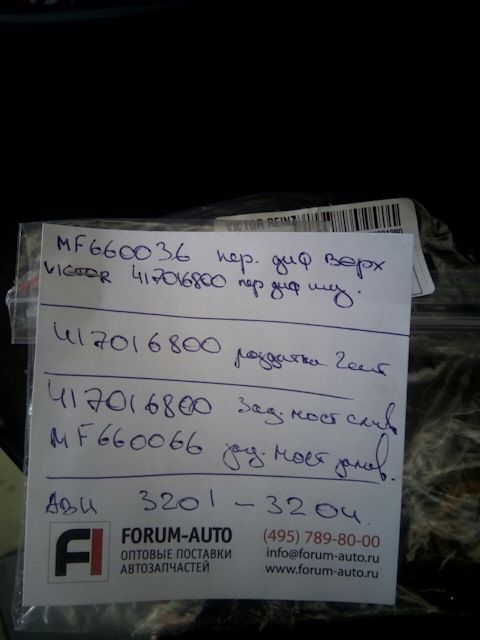 VICTOR REINZ
MF660036 пер. диф верх
VICTOR 417016800 пер диф
417016800 раздатка 2шт
417016800 зад. мост слив
MF660066 зад. мост залив.
3201 - 3204
FORUM-AUTO
ОПТОВЫЕ ПОСТАВКИ
АВТОЗАПЧАСТЕЙ
(495) 789-80-00
info@forum-auto.ru
www.forum-auto.ru